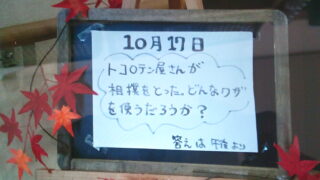 10月17日
トコロテン屋さんが
相撲をとった。どんなワザ
を使うだろうか？
答えは 午後より